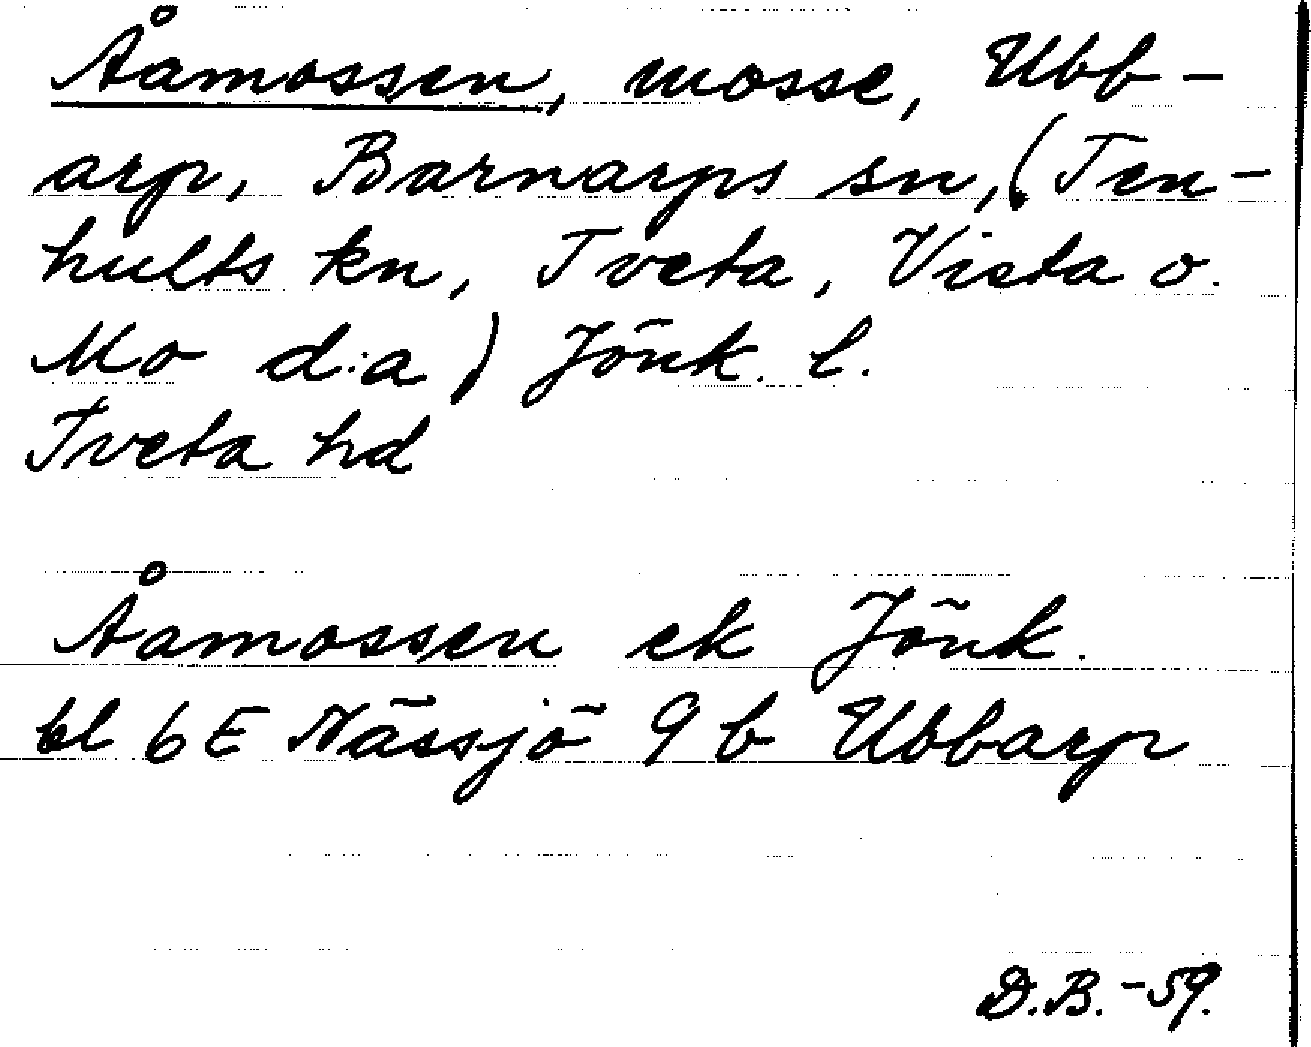 Åamossen, mosse, Ubb-
arp, Barnarps sn, (Ten-
hults kn, Tveta, Vista o.
Mo d:a) Jönk. l.
Tveta hd
Åamossen ek Jönk.
bl 6E Nässjö 9 b Ubbarp
D.B. -59.